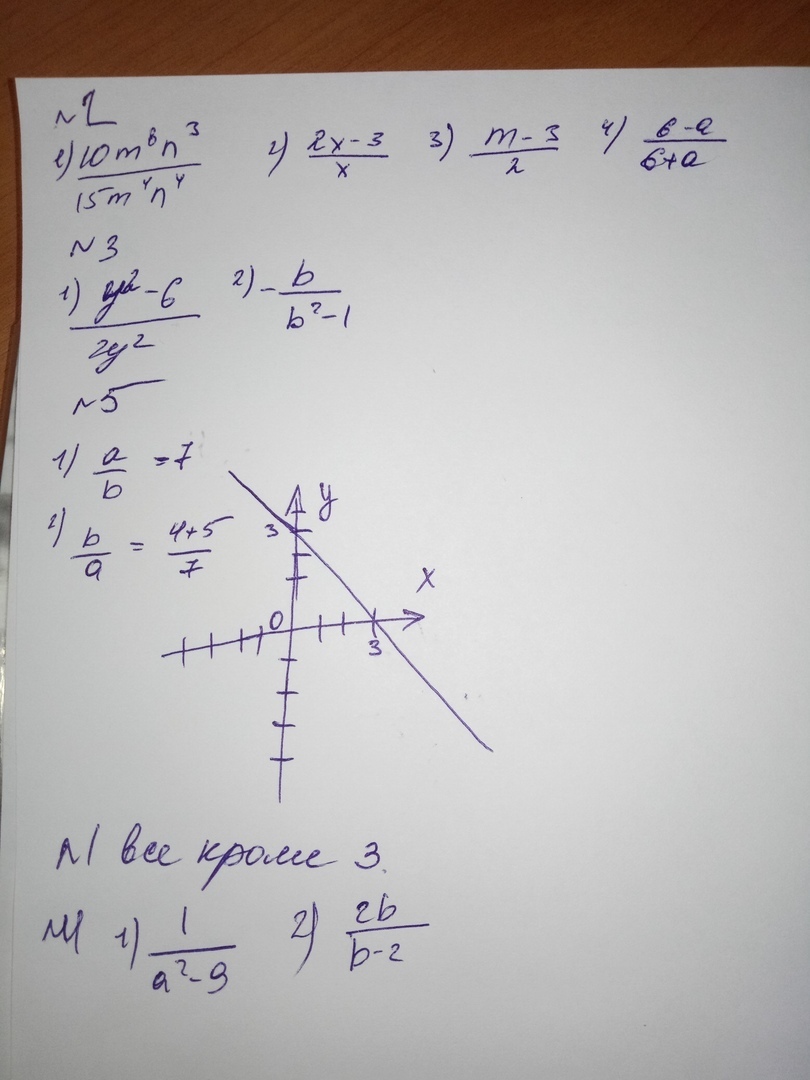 №2
1) 10m⁸n³/15m⁴n⁴ 2) 2x-3/x 3) m-3/2 4) 6-a/6+a
№3
1) y²-6/2y² 2) -b/b²-1
№5
1) a/b =7
2) b/a = 4+5/7
y
3
x
0
3
№1 все кроме 3.
1) 1/a²-9 2) 2b/b-2